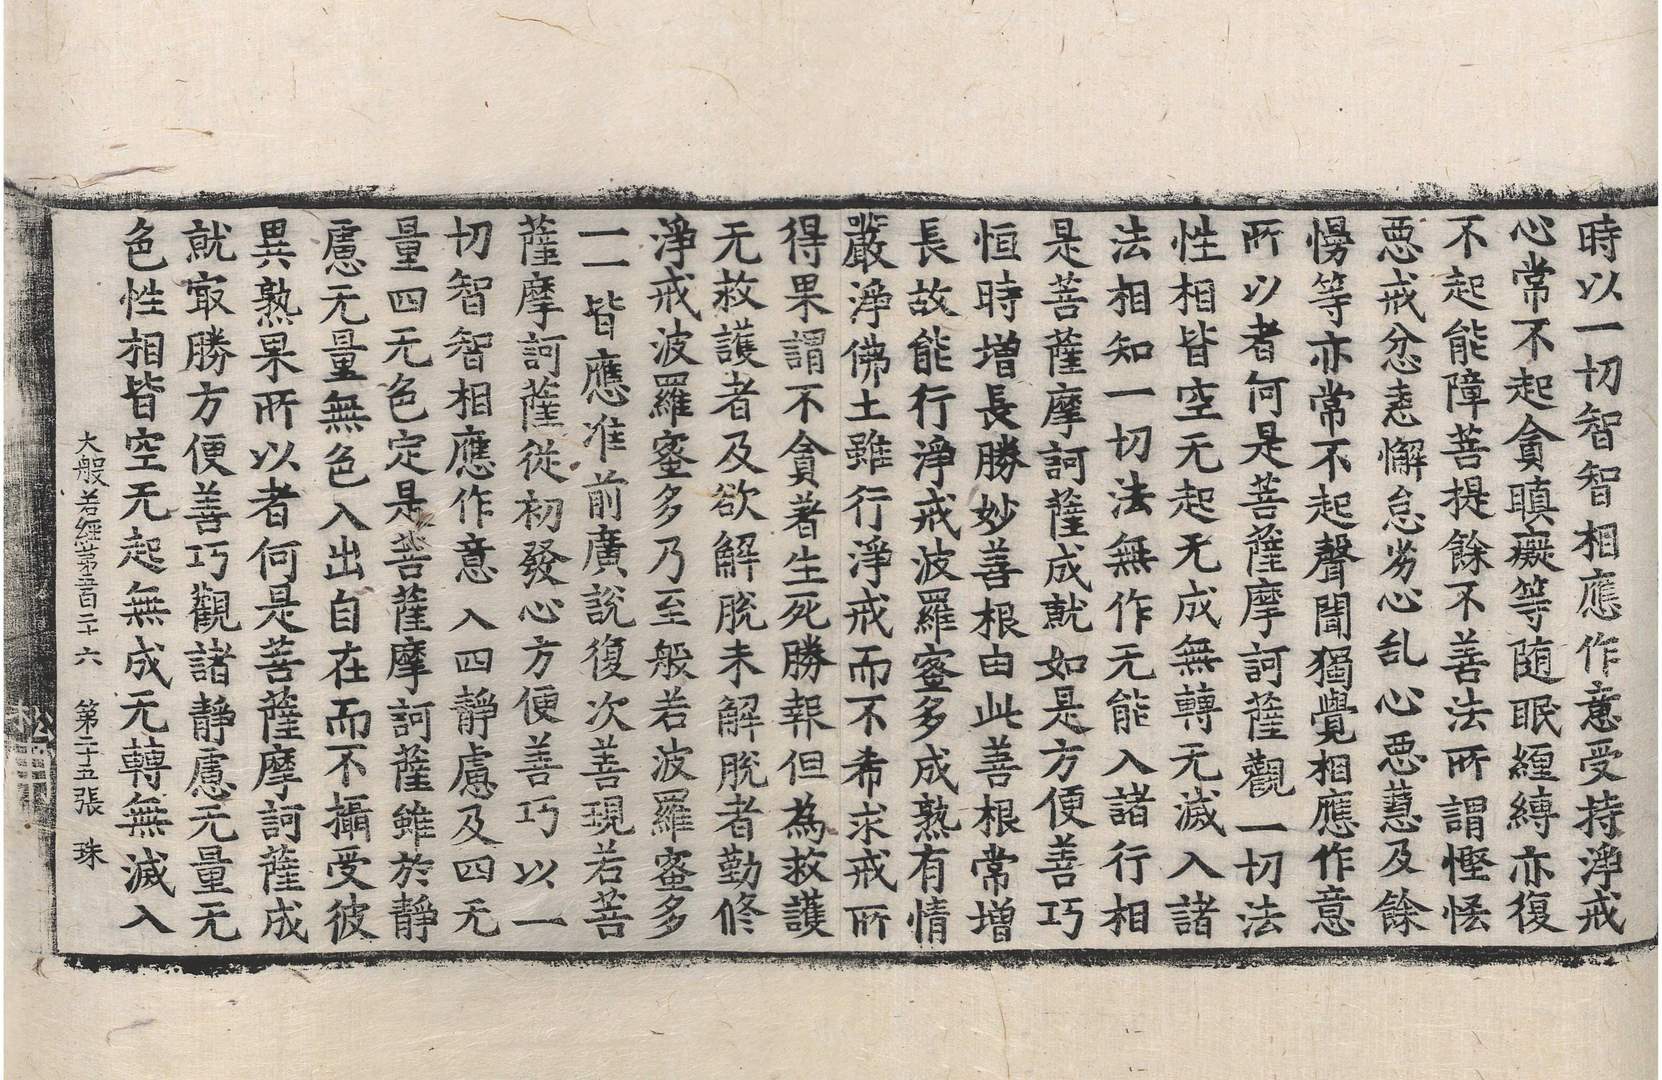 時以一切智智相應作意受持淨戒
心常不起貪瞋癡等隨眠纏縛亦復
不起能障菩提餘不善法所謂慳悋
惡戒忿恚懈怠劣心乱心惡慧及餘
慢等亦常不起聲聞獨覺相應作意
所以者何是菩薩摩訶薩觀一切法
性相皆空无起无成無轉无滅入諸
法相知一切法無作无能入諸行相
是菩薩摩訶薩成就如是方便善巧
恒時增長勝妙善根由此善根常增
長故能行淨戒波羅蜜多成熟有情
嚴淨佛土雖行淨戒而不希求戒所
得果謂不貪著生死勝報但為救護
无救護者及欲解脫未解脫者勤修
淨戒波羅蜜多乃至般若波羅蜜多
一一皆應准前廣說復次善現若菩
薩摩訶薩從初發心方便善巧以一
切智智相應作意入四靜慮及四无
量四无色定是菩薩摩訶薩雖於靜
慮无量無色入出自在而不攝受彼
異熟果所以者何是菩薩摩訶薩成
就㝡勝方便善巧觀諸靜慮无量无
色性相皆空无起無成无轉無滅入
大般若經第五百二十六 第二十五張 珠